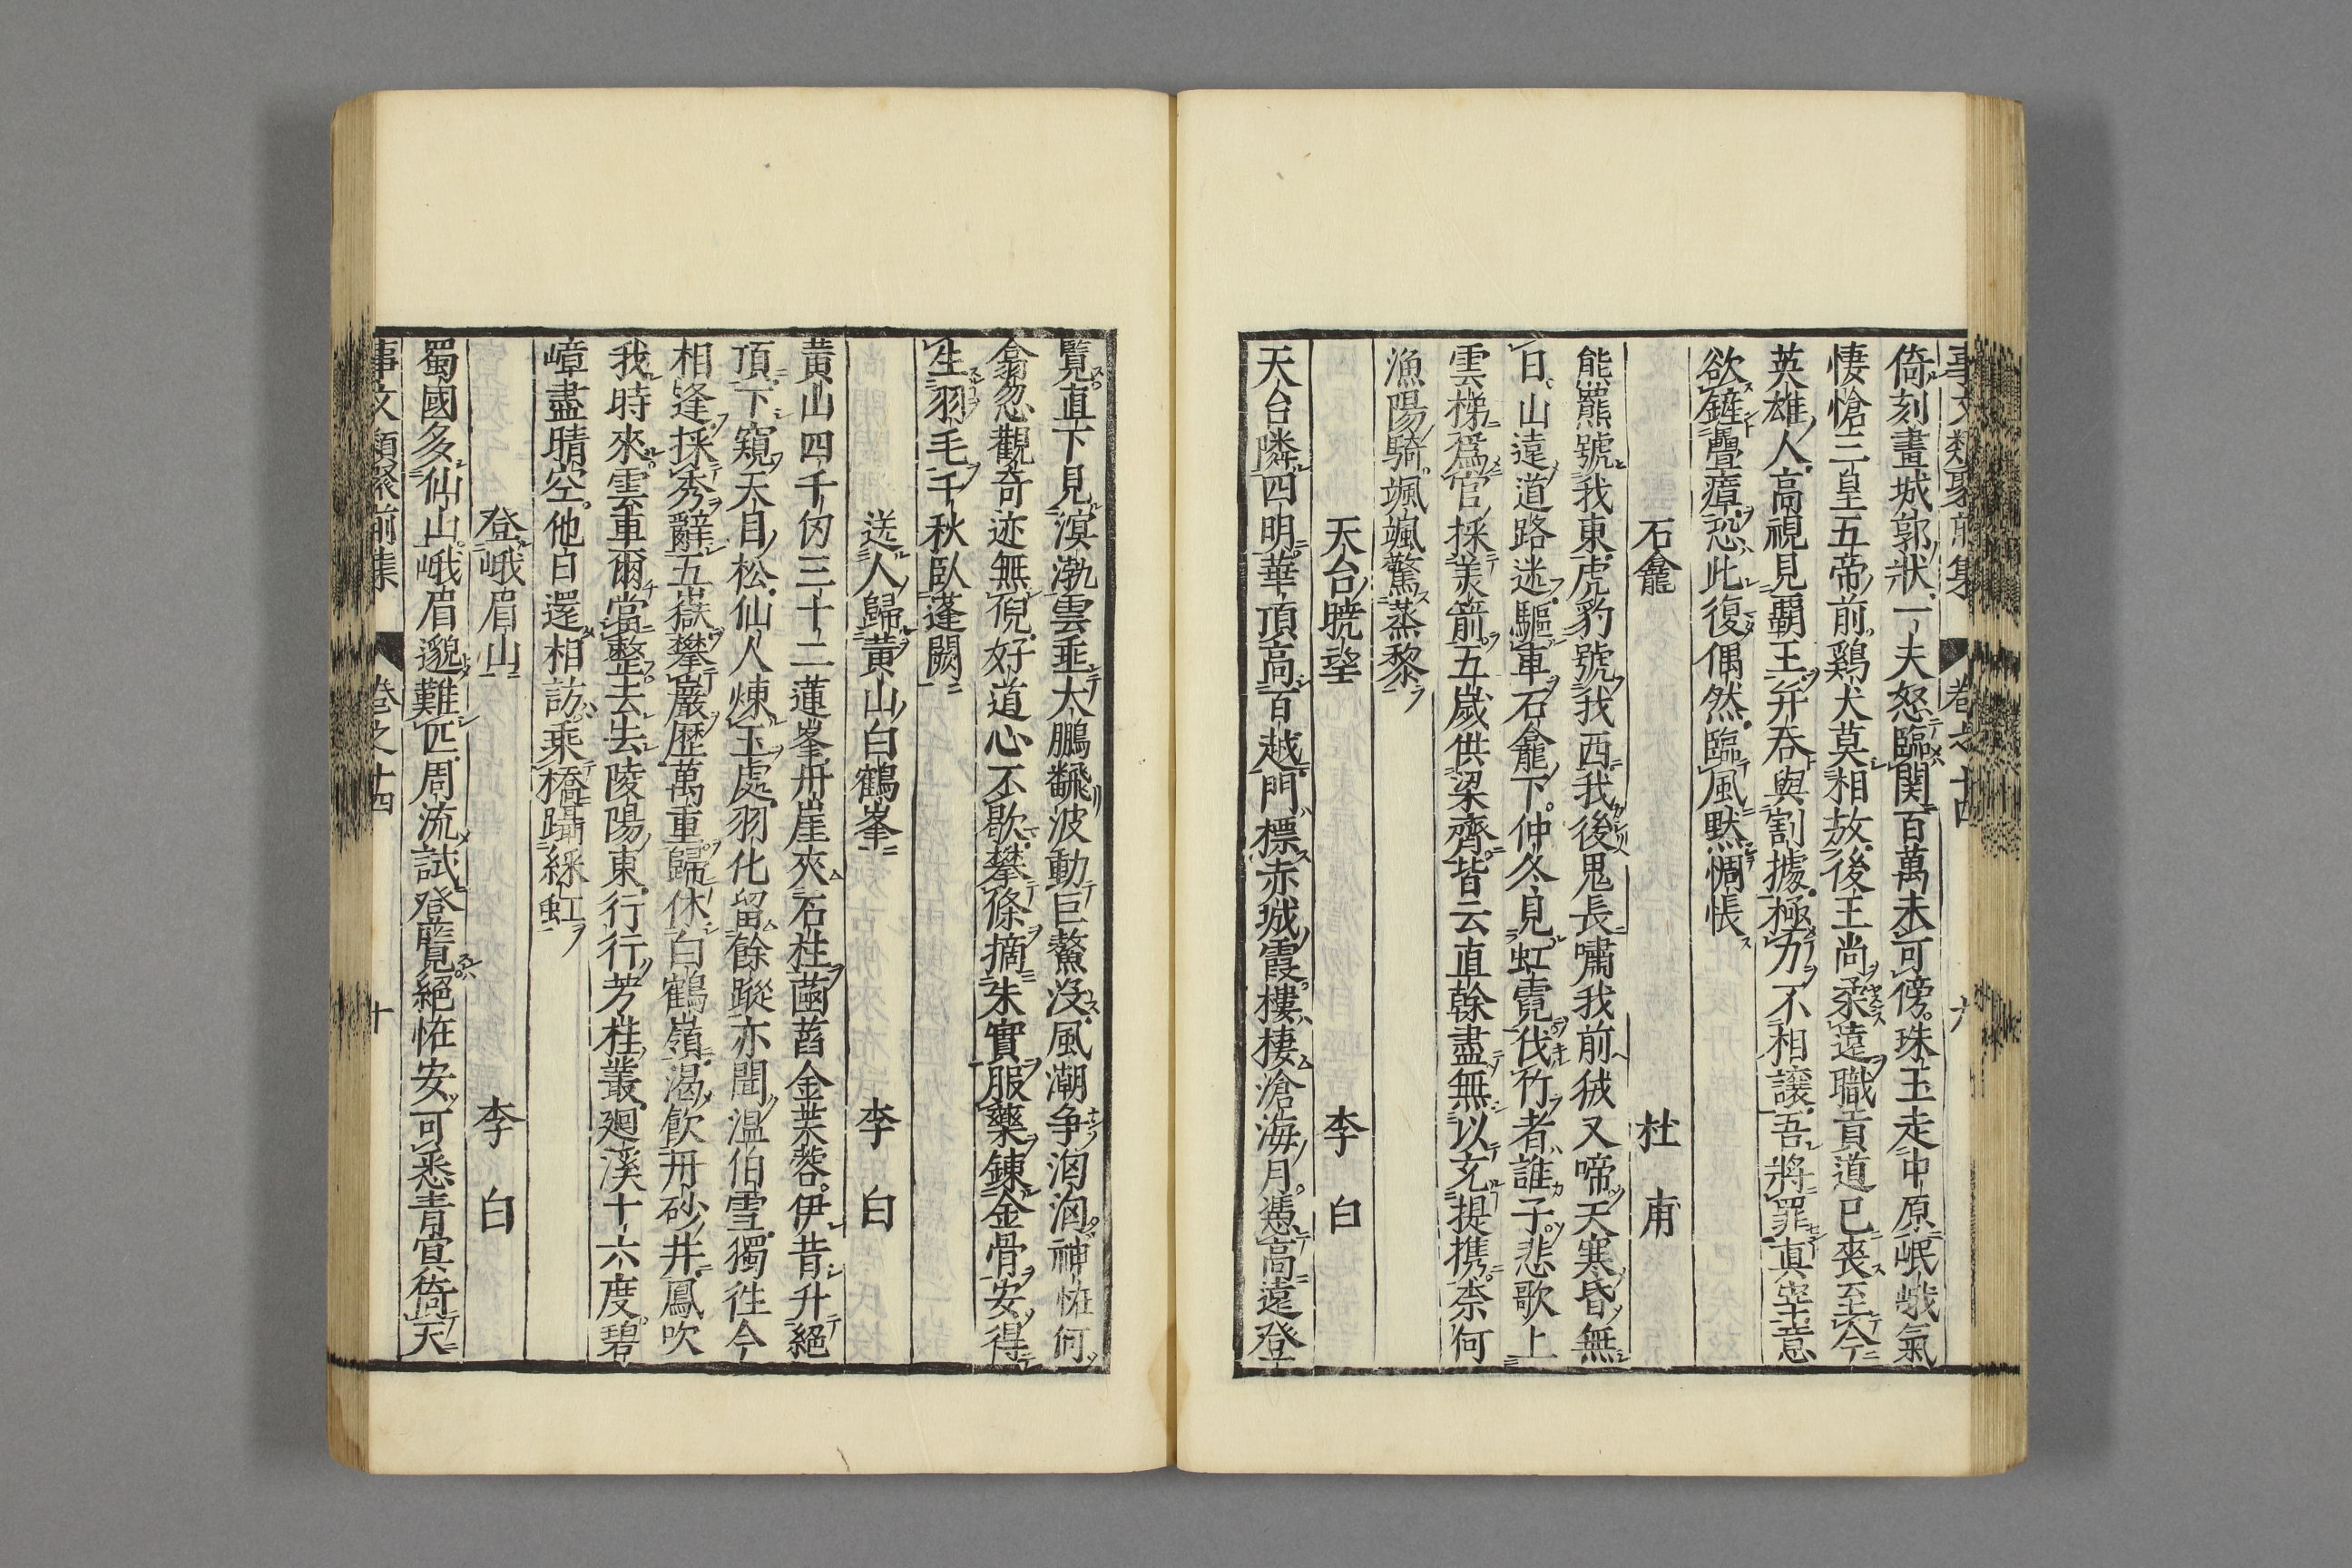 事文類聚前集 卷之十四
倚刻畫城郭狀一夫怒臨関百萬未可傍珠玉走中原岷峨氣
悽愴三皇五帝前鷄犬莫相放後王尚柔遠職貢道已喪至今
英雄人高視見覇王并吞與割據極力不相讓吾將罪真宰意
欲鏟疊嶂恐此復偶然臨風黙惆悵
石龕 杜甫
熊羆號我東虎豹號我西我後鬼長嘯我前狨又啼天寒昏無
日山遠道路迷驅車石龕下仲冬見虹霓伐竹者誰子悲歌上
雲梯爲官採美箭五歲供梁齊皆云直簳盡無以充提携柰何
漁陽騎颯颯驚蒸黎
天台曉望 李白
天台隣四明華頂高百越門標赤城霞樓棲滄海月憑高遠登
覽直下見溟渤雲垂大鵬飜波動巨鰲没風潮争洶洶神恠何
翕忽觀奇迹無倪好道心不歇攀條摘朱實服藥鍊金骨安得
生羽毛千秋臥蓬闕
送人歸黄山白鶴峯 李白
黄山四千仞三十二蓮峯丹崖夾石柱菡萏金芙蓉伊昔升絕
頂下窺天目松仙人煉玉處羽化留餘蹤亦聞温伯雪獨往今
相逢採秀辭五嶽攀巖歷萬重歸休白鶴嶺渴飲丹砂井鳳吹
我時來雲車爾當整去去陵陽東行行芳桂叢廻溪十六度碧
嶂盡晴空他日還相訪乘橋躡綵虹
登峨眉山 李白
蜀國多仙山峨眉邈難匹周流試登覽絕恠安可悉青冥倚天
事文類聚前集 卷之十四 十